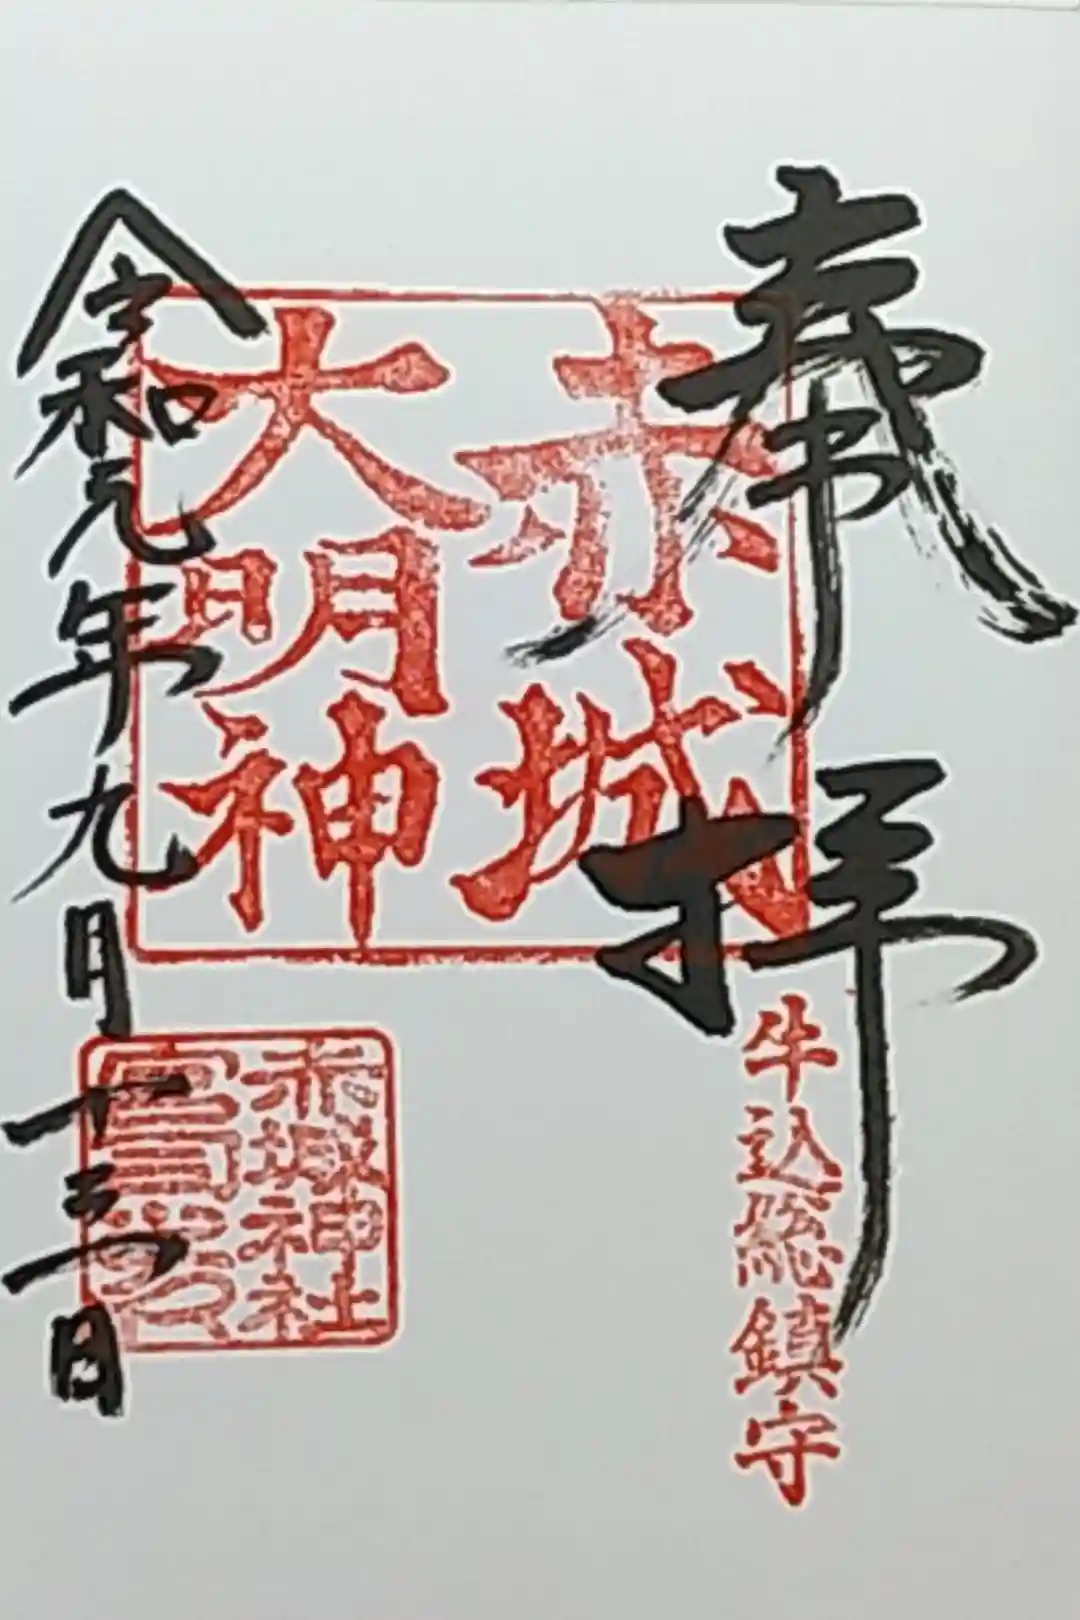 奉拝
牛込総鎮守
赤城
大明神
赤城神社
令和元年九月十三日